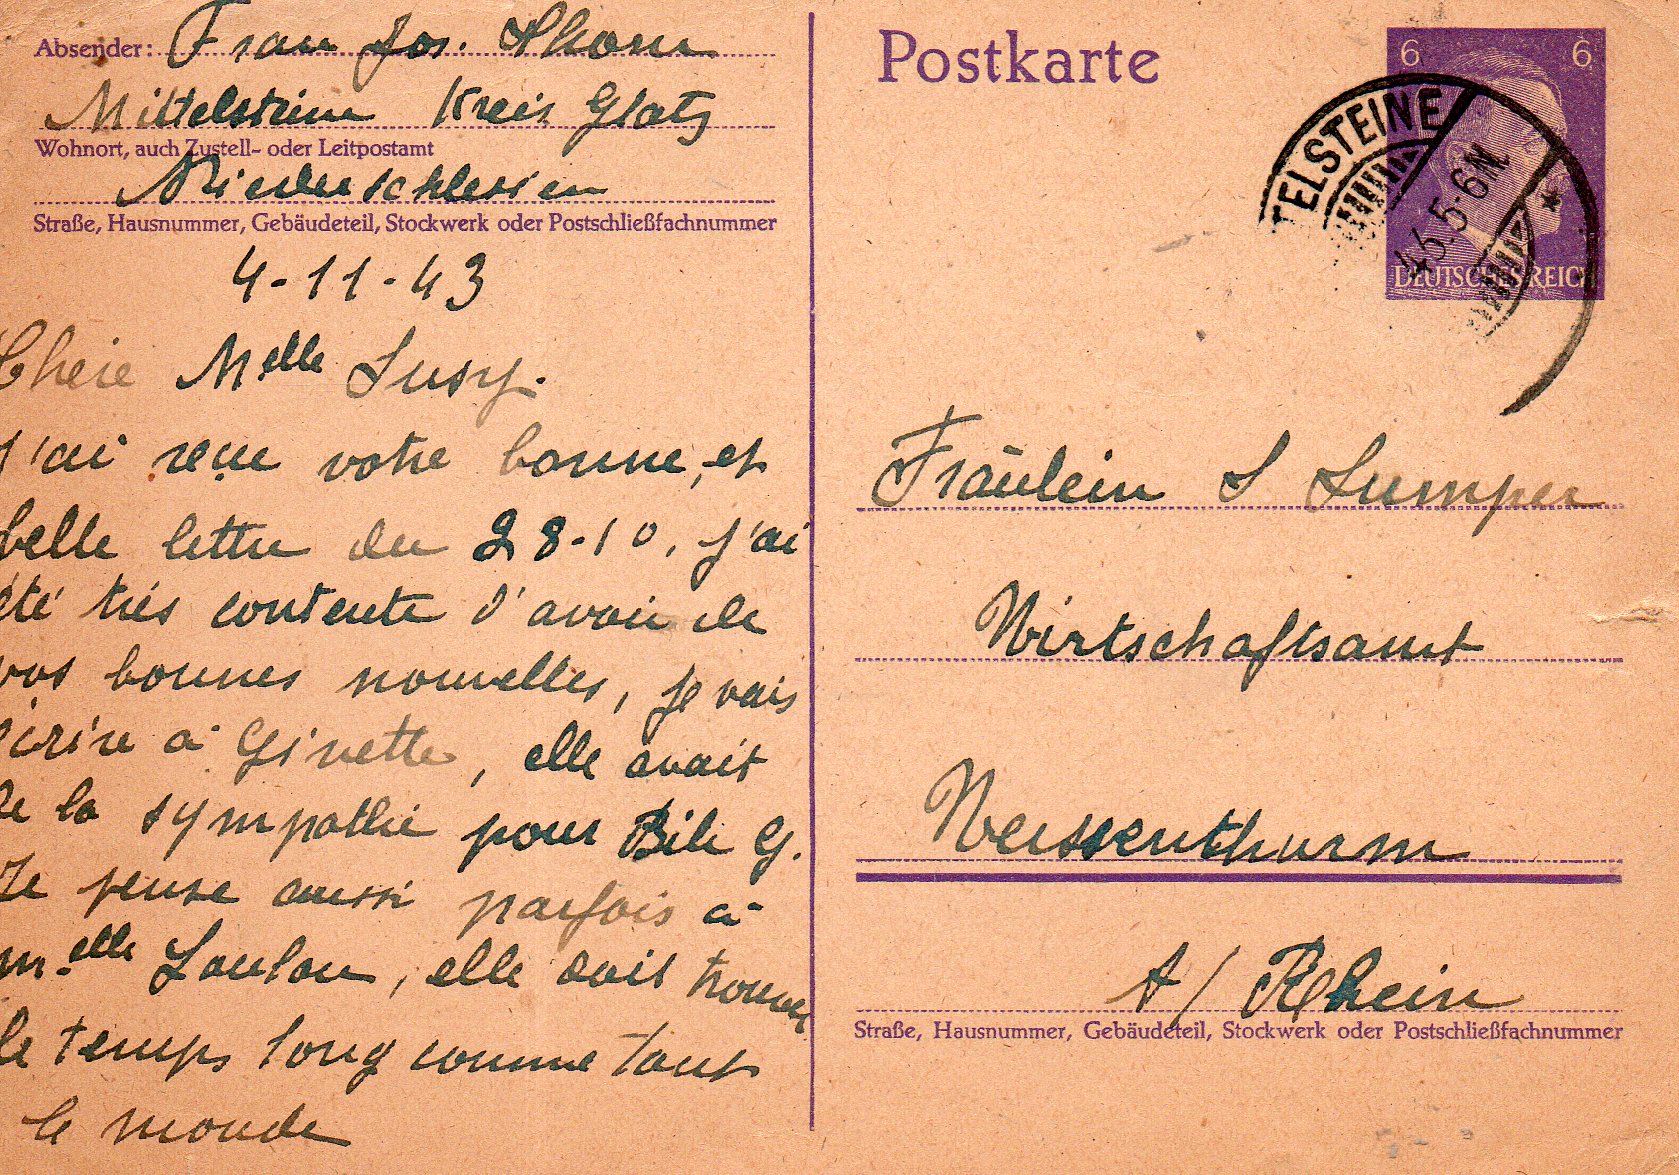 Absender: Frau Jos. Thom
Mittelsteine Kreis Glatz
Wohnort, auch Zustell- oder Leitpostamt
Niederschlesien
Straße, Hausnummer, Gebäudeteil, Stockwerk oder Postschließfachnummer
4-11-43
Chère Melle Lusy.
J'ai reçu votre bonne, et
belle lettre du 28-10, j'ai
été très contente d'avoir de
vos bonnes nouvelles, je vais
écrire à Ginette, elle avait
de la sympathie pour Bili G.
Je pense aussi parfois à
m.elle Loulou, elle doit trouver
le temps long comme tout
le monde
Postkarte
6 6
DEUTSCHES REICH
TELSTEINE
43.5-6N
Fräulein L Lumper
Wirtschaftsamt
Weissenthurm
A/ Rhein
Straße, Hausnummer, Gebäudeteil, Stockwerk oder Postschließfachnummer